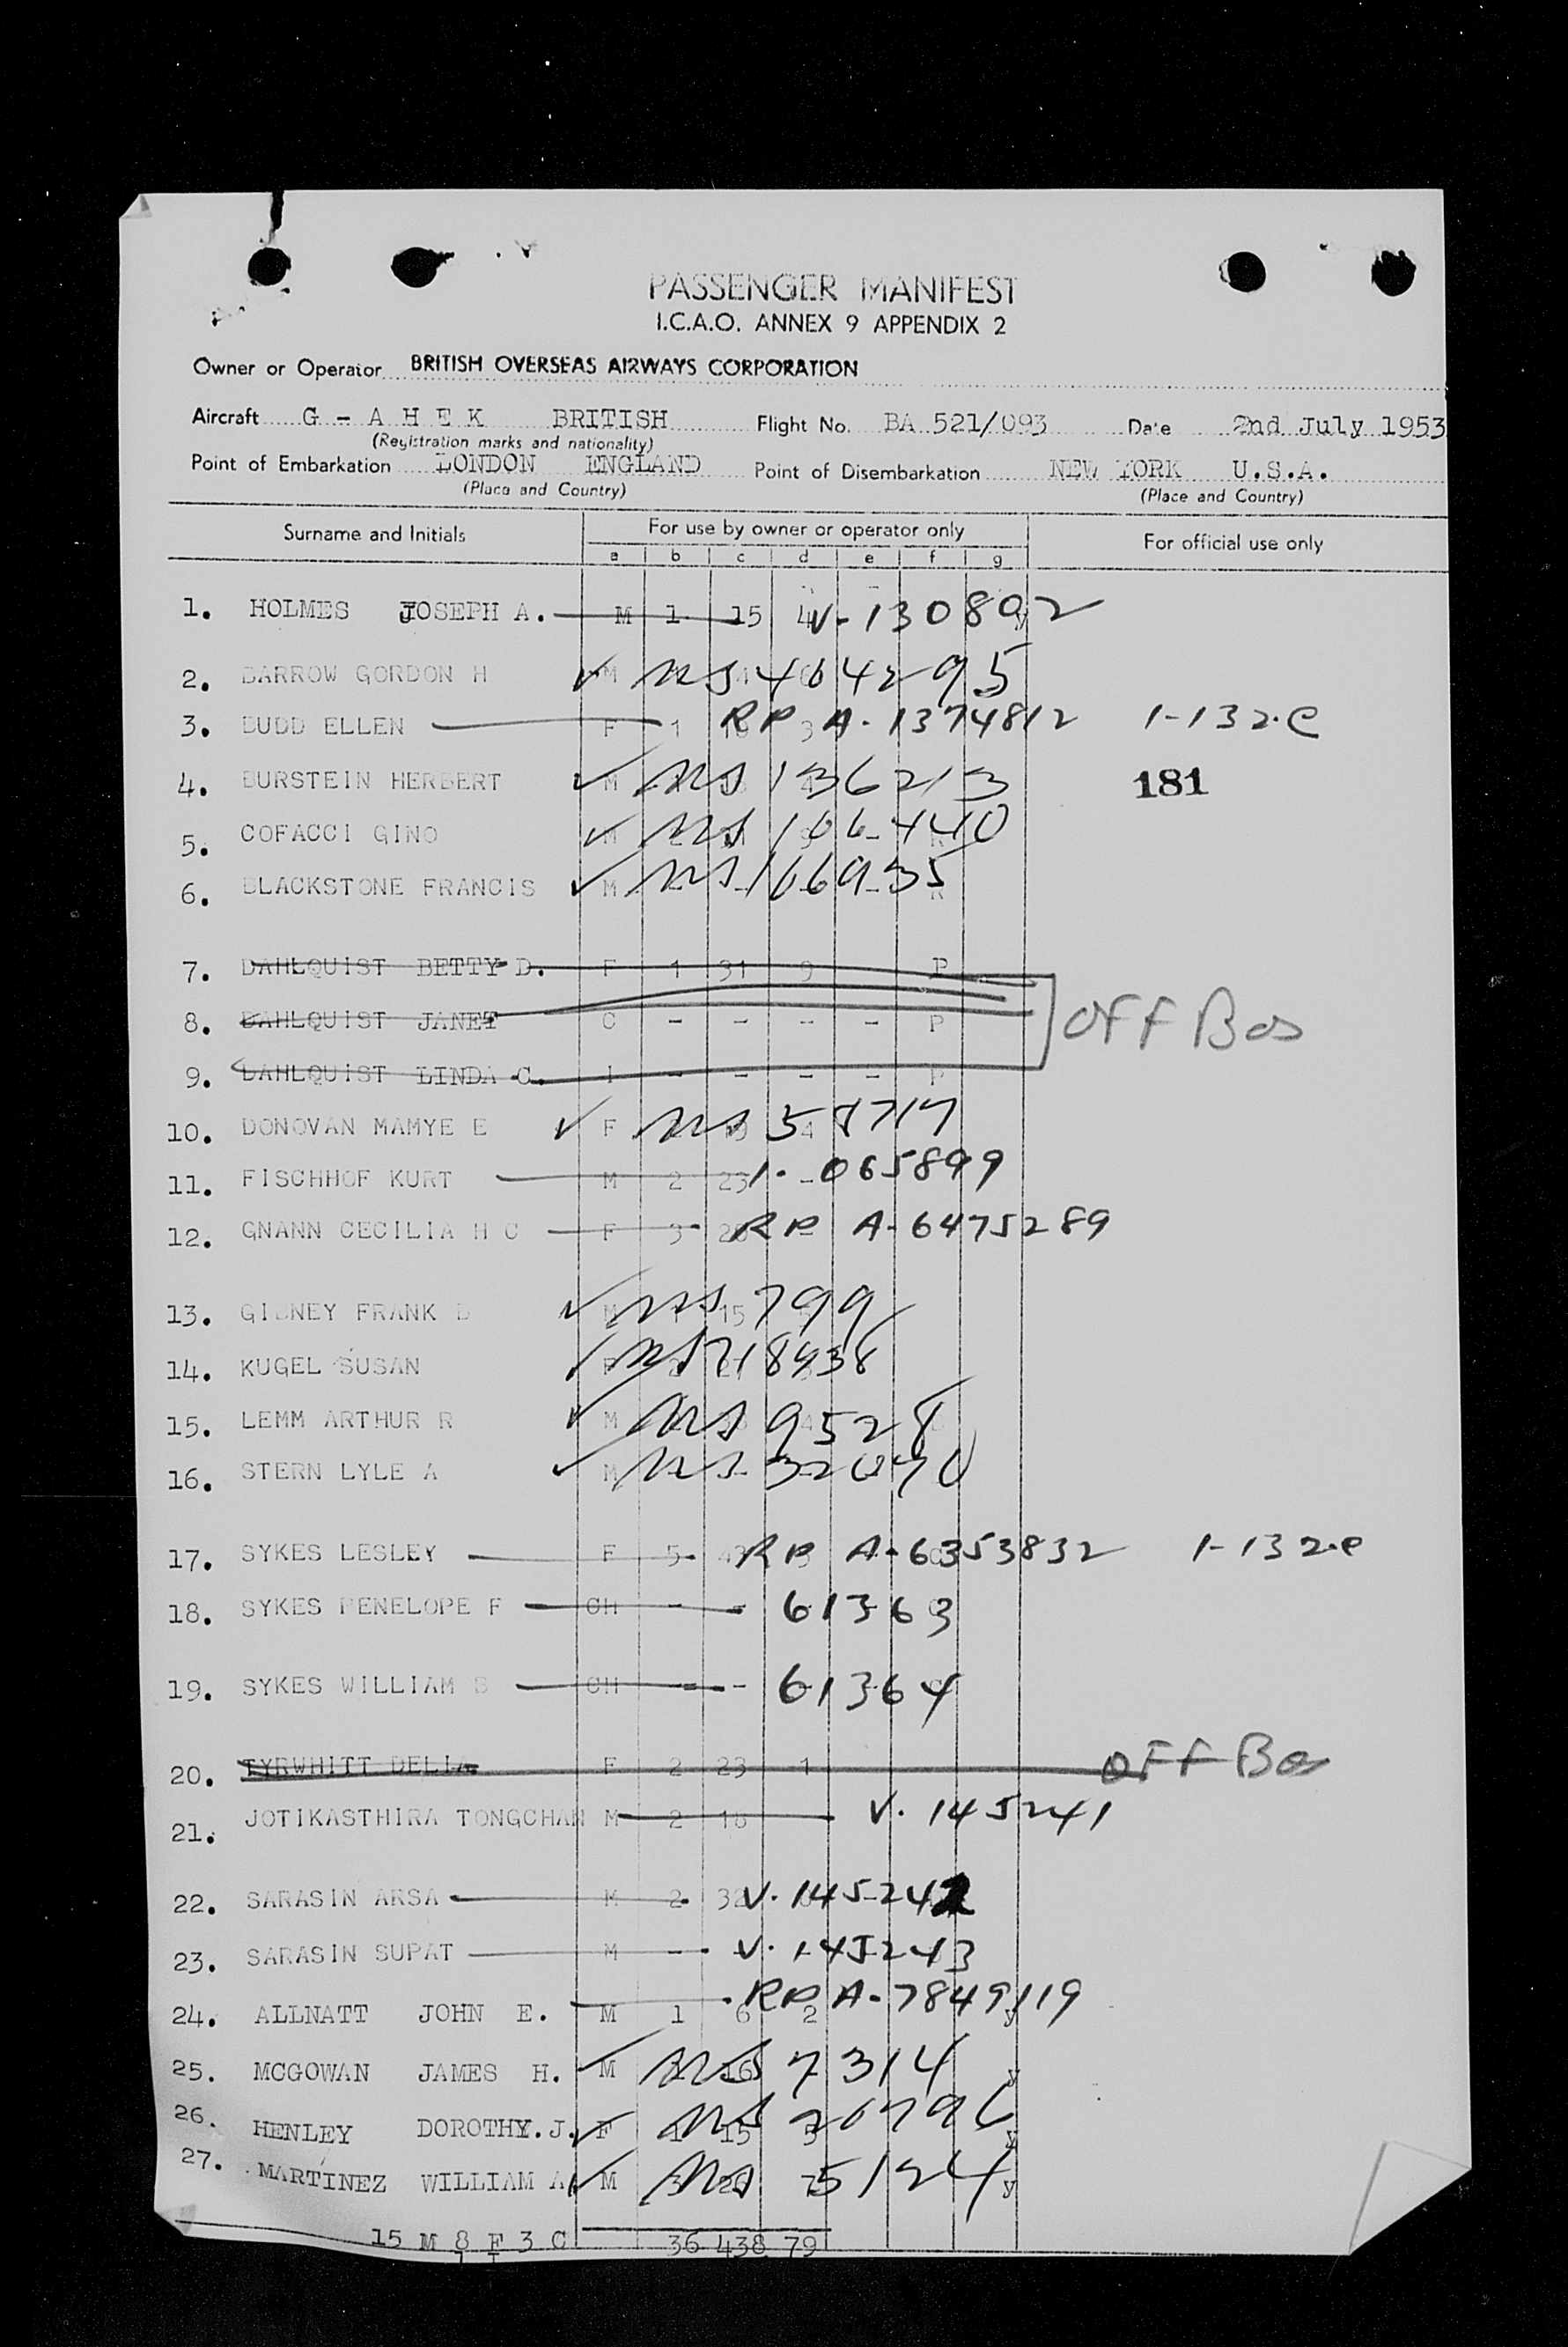 PASSENGER MANIFEST
I.C.A.O. ANNEX 9 APPENDIX 2
Owner or Operator BRITISH OVERSEAS AIRWAYS CORPORATION
Aircraft G - A H E K BRITISH Flight No. BA 521/093 Date 2nd July 1953
(Registration marks and nationality)
Point of Embarkation LONDON ENGLAND Point of Disembarkation NEW YORK U.S.A.
(Place and Country) (Place and Country)
Surname and Initials For use by owner or operator only For official use only
a b c d e f g
1. HOLMES JOSEPH A. M 1 15 4 V-130802 y
2. BARROW GORDON H M US 404295
3. BUDD ELLEN F 1 RP A-1374812 1-132.e
4. BURSTEIN HERBERT M US 136213 181
5. COFACCI GINO M US 106440
6. BLACKSTONE FRANCIS M US 166935
7. DAHLQUIST BETTY D. F 1 31 9 P
8. DAHLQUIST JANET C - - - - P OFF Bos
9. DAHLQUIST LINDA C. I - - - - P
10. DONOVAN MAMYE E F US 4
11. FISCHHOF KURT M 2 23 - 065899
12. GNANN CECILIA H C F 3 RP A-6475289
13. GIBNEY FRANK B M 15 US 799
14. KUGEL SUSAN F US 718438
15. LEMM ARTHUR R M US 9528
16. STERN LYLE A M US
17. SYKES LESLEY F 5 RP A-6353832 1-132.e
18. SYKES PENELOPE F CH - - 61363
19. SYKES WILLIAM S CH - - 61364
20. TYRWHITT DELIA F 2 23 1 OFF Bos
21. JOTIKASTHIRA TONGCHAN M 2 18 V. 145241
22. SARASIN ARSA M 2 32 V. 145242
23. SARASIN SUPAT M - V. 145243
24. ALLNATT JOHN E. M 1 6 2 RP A-7849119 y
25. MCGOWAN JAMES H. M US 16 7314 y
26. HENLEY DOROTHY.J. F 1 US 15 5 20796 y
27. MARTINEZ WILLIAM A M US 5124 y
15 M 8 F 3 C 36 438 79
1 I